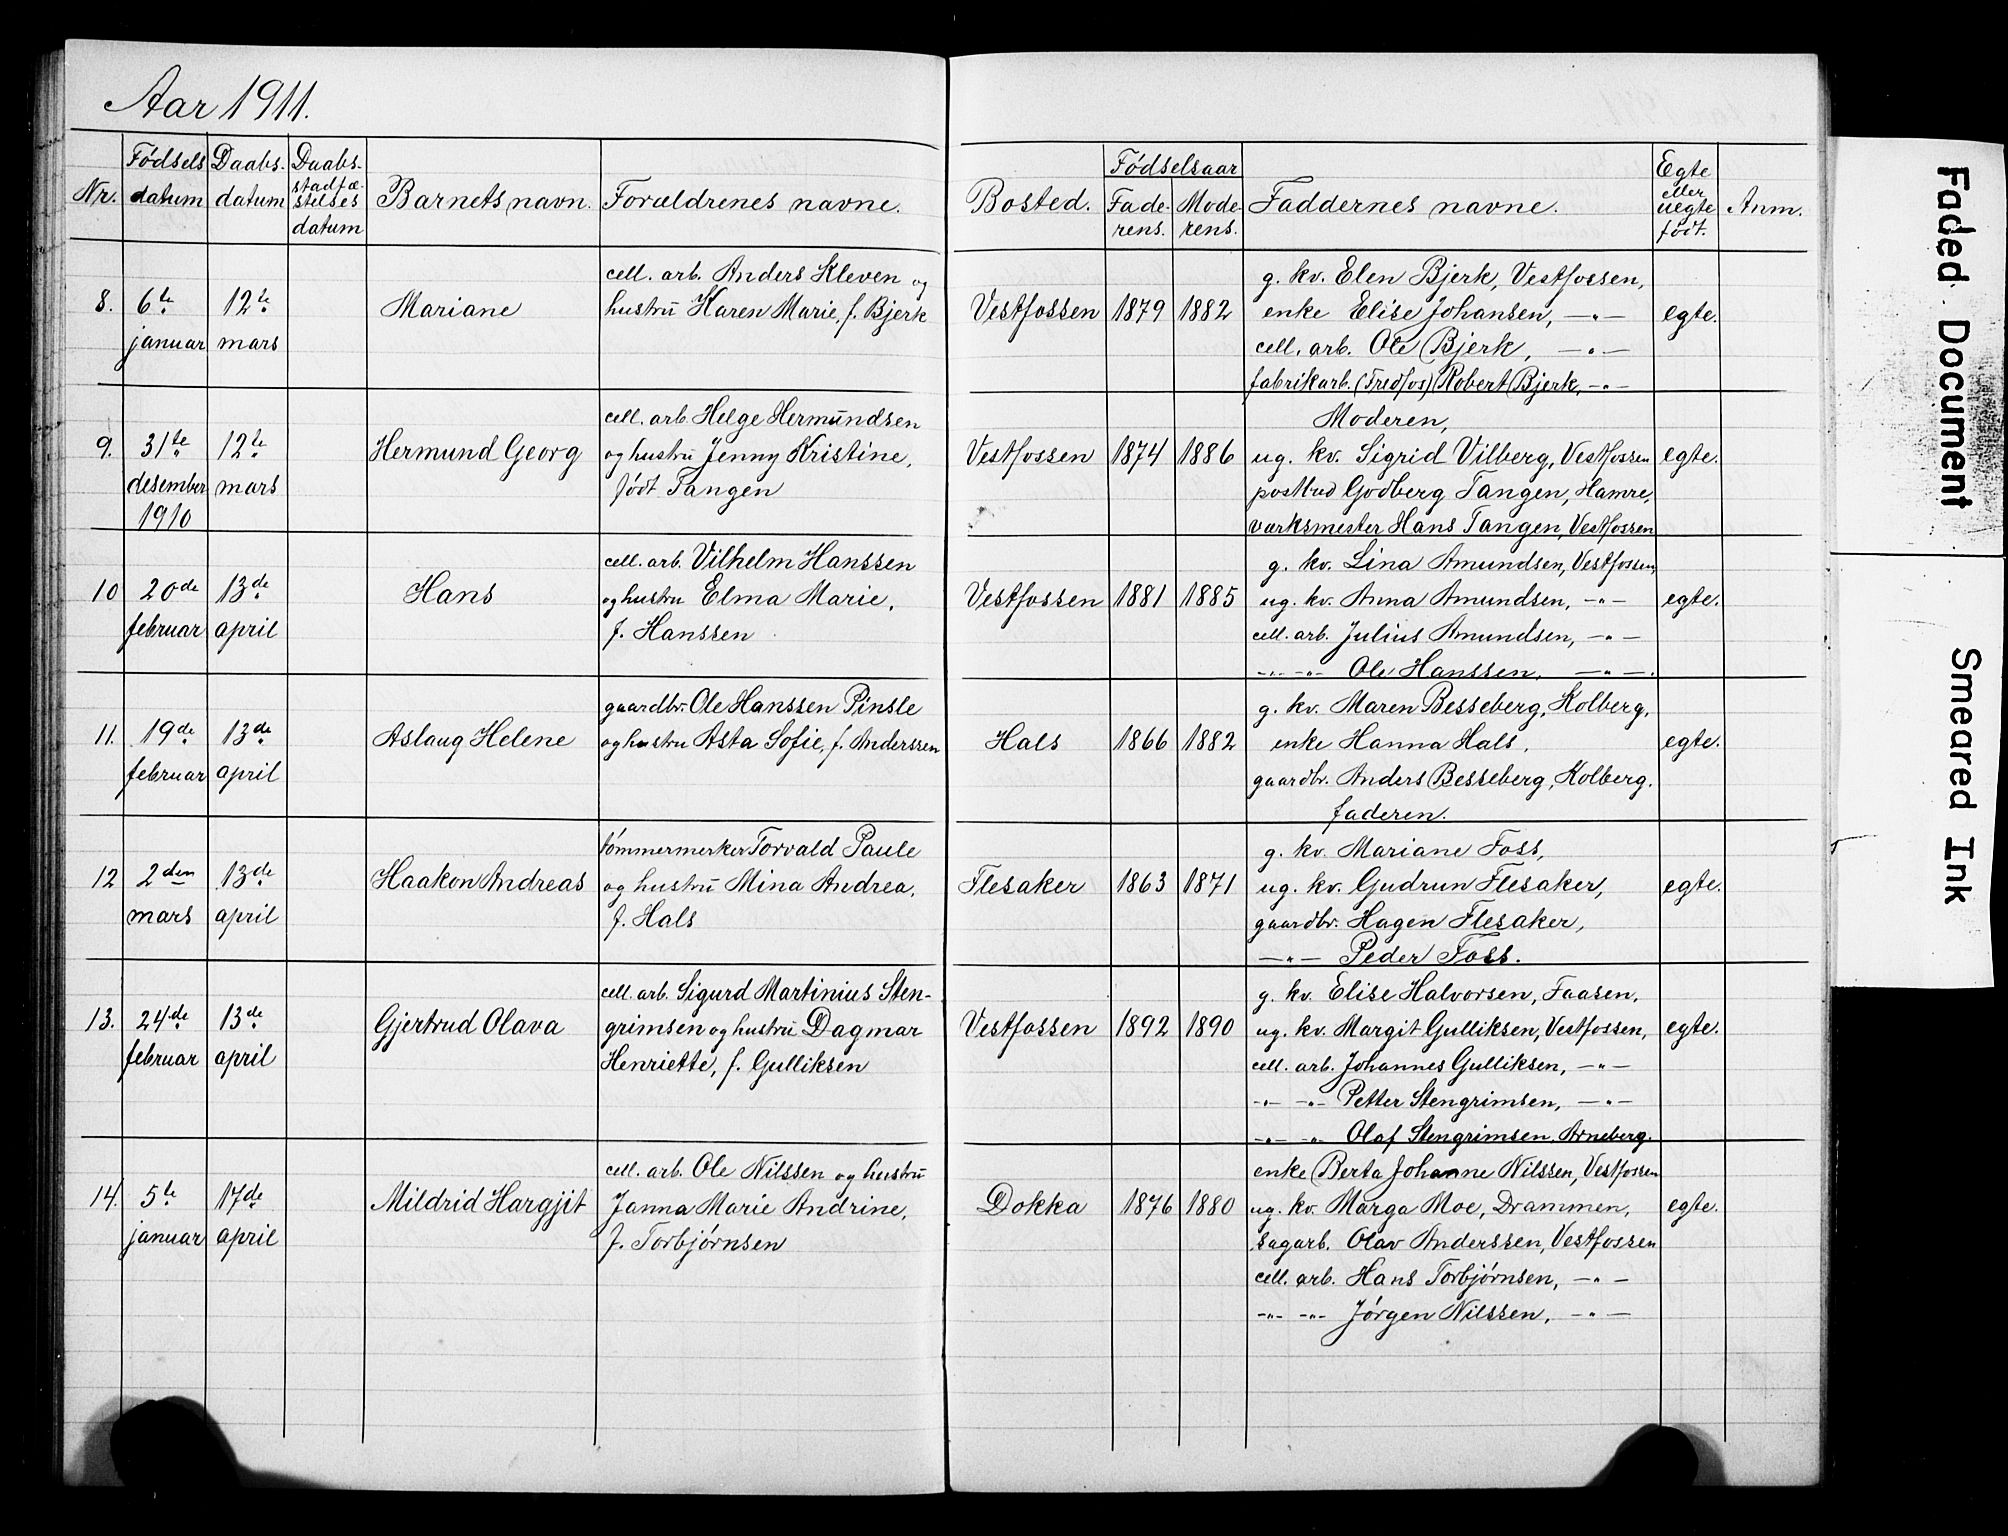 Aar 1911.
Nr.
Fødsels
datum
Daabs-
datum
Daabs-
stadfæ-
stelses
datum
Barnets navn.
Forældrenes navne.
Bosted.
Fødselsaar
Fade-
rens.
Mode-
rens.
Faddernes navne.
Egte
eller
uegte
født.
Anm.
8.
6te
januar
12te
mars
Mariane
cell. arb. Anders Kleven og
hustru Karen Marie, f. Bjerk
Vestfossen
1879
1882
g. kv. Elen Bjerk, Vestfossen,
enke Elise Johansen, —"—
cell. arb. Ole Bjerk, —"—
fabrikarb. (Fredfos) Robert Bjerk, —"—
egte.
9.
31te
desember
1910
12te
mars
Hermund Georg
cell. arb. Helge Hermundsen
og hustru Jenny Kristine,
født Tangen
Vestfossen
1874
1886
Moderen,
ug. kv. Sigrid Vilberg, Vestfossen
postbud Godberg Tangen, Hamre,
værksmester Hans Tangen, Vestfossen
egte.
10
20de
februar
13de
april
Hans
cell. arb. Vilhelm Hanssen
og hustru Elma Marie,
f. Hanssen
Vestfossen
1881
1885
g. kv. Lina Amundsen, Vestfossen,
ug. kv. Anna Amundsen, —"—
cell. arb. Julius Amundsen, —"—
—"— —"— Ole Hanssen, —"—.
egte.
11.
19de
februar
13de
april
Aslaug Helene
gaardbr. Ole Hanssen Pinsle
og hustru Asta Sofie, f. Anderssen
Hals
1866
1882
g. kv. Maren Besseberg, Kolberg,
enke Hanna Hals,
gaardbr. Anders Besseberg, Kolberg.
faderen.
egte.
12
2den
mars
13de
april
Haakon Andreas
tømmermerker Torvald Paule
og hustru Mina Andrea,
f. Hals
Flesaker
1863
1871
g. kv. Mariane Foss,
ug. kv. Gudrun Flesaker,
gaardbr. Hagen Flesaker,
—"— Peder Foss.
egte.
13.
24de
februar
13de
april
Gjertrud Olava
cell. arb. Sigurd Martinius Sten-
grimsen og hustru Dagmar
Henriette, f. Gulliksen
Vestfossen
1892
1890
g. kv. Elise Halvorsen, Faasen,
ug. kv. Margit Gulliksen, Vestfossen,
cell. arb. Johannes Gulliksen, —"—
—"— —"— Petter Stengrimsen, —"—
—"— —"— Olaf Stengrimsen, Arneberg.
egte.
14.
5te
januar
17de
april
Mildrid Hargjit
cell. arb. Ole Nilssen og hustru
Janna Marie Andrine,
f. Torbjørnsen
Dokka
1876
1880
enke Berta Johanne Nilssen, Vestfossen
ug. kv. Marga Moe, Drammen,
sagarb. Olav Anderssen, Vestfossen
cell. arb. Hans Torbjørnsen, —"—
—"— —"— Jørgen Nilssen, —"—
egte.
Faded Document
Smeared Ink